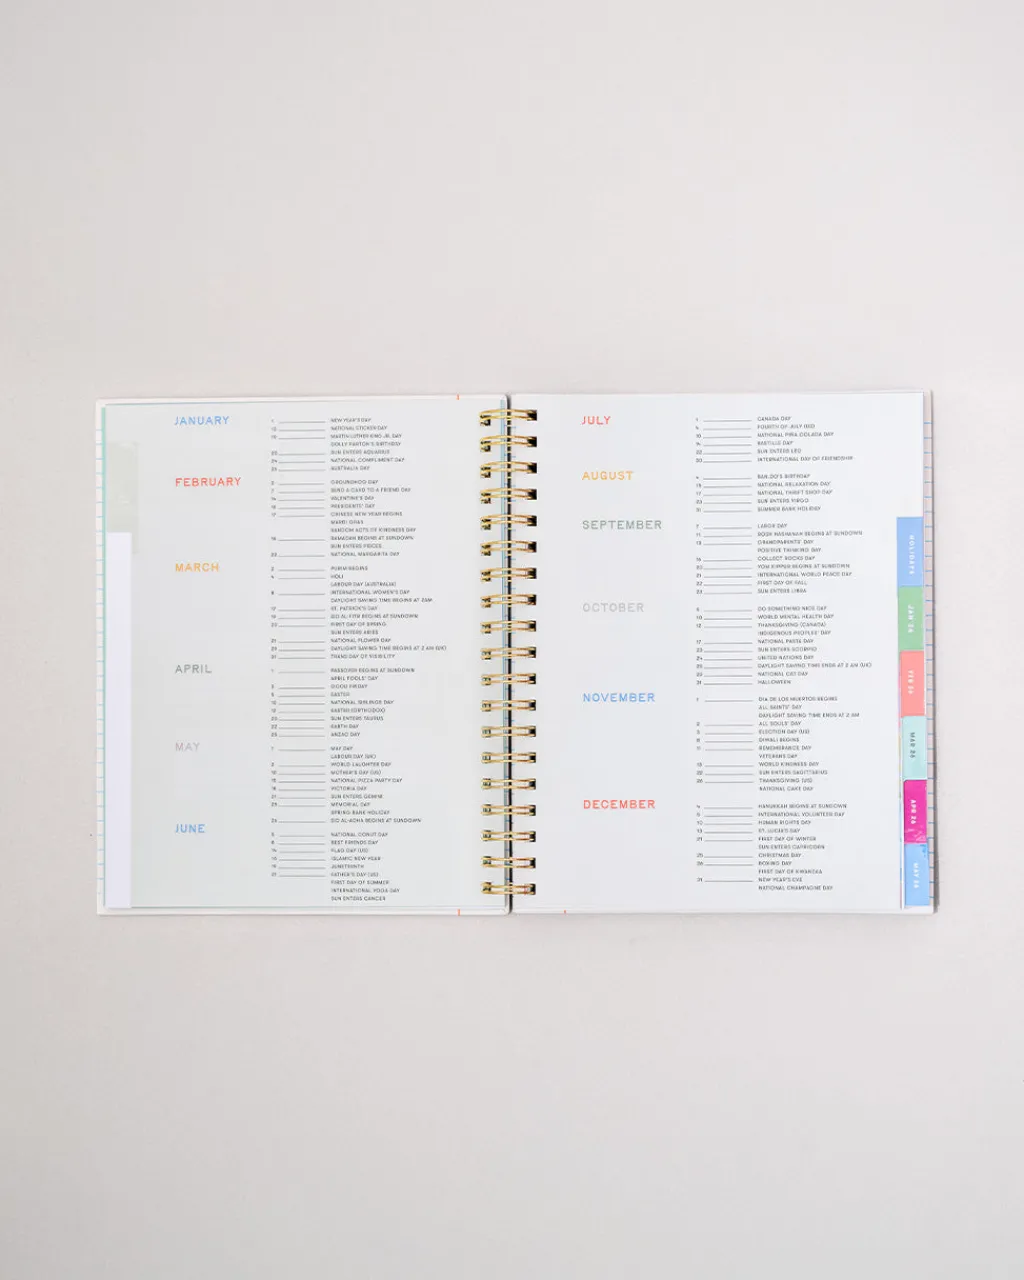 JANUARY
1 NEW YEAR'S DAY
13 NATIONAL STICKER DAY
19 MARTIN LUTHER KING JR. DAY
DOLLY PARTON'S BIRTHDAY
20 SUN ENTERS AQUARIUS
24 NATIONAL COMPLIMENT DAY
26 AUSTRALIA DAY
FEBRUARY
2 GROUNDHOG DAY
7 SEND A CARD TO A FRIEND DAY
14 VALENTINE'S DAY
16 PRESIDENTS' DAY
17 CHINESE NEW YEAR BEGINS
MARDI GRAS
RANDOM ACTS OF KINDNESS DAY
18 RAMADAN BEGINS AT SUNDOWN
SUN ENTERS PISCES
22 NATIONAL MARGARITA DAY
MARCH
2 PURIM BEGINS
4 HOLI
LABOUR DAY (AUSTRALIA)
8 INTERNATIONAL WOMEN'S DAY
DAYLIGHT SAVING TIME BEGINS AT 2AM
17 ST. PATRICK'S DAY
19 EID AL-FITR BEGINS AT SUNDOWN
20 FIRST DAY OF SPRING
SUN ENTERS ARIES
21 NATIONAL FLOWER DAY
29 DAYLIGHT SAVING TIME BEGINS AT 2 AM (UK)
31 TRANS DAY OF VISIBILITY
APRIL
1 PASSOVER BEGINS AT SUNDOWN
APRIL FOOLS' DAY
3 GOOD FRIDAY
5 EASTER
10 NATIONAL SIBLINGS DAY
12 EASTER (ORTHODOX)
20 SUN ENTERS TAURUS
22 EARTH DAY
25 ANZAC DAY
MAY
1 MAY DAY
LABOUR DAY (UK)
WORLD LAUGHTER DAY
10 MOTHER'S DAY (US)
15 NATIONAL PIZZA PARTY DAY
18 VICTORIA DAY
21 SUN ENTERS GEMINI
25 MEMORIAL DAY
SPRING BANK HOLIDAY
26 EID AL-ADHA BEGINS AT SUNDOWN
JUNE
5 NATIONAL DONUT DAY
8 BEST FRIENDS DAY
14 FLAG DAY (US)
ISLAMIC NEW YEAR
19 JUNETEENTH
21 FATHER'S DAY (US)
FIRST DAY OF SUMMER
INTERNATIONAL YOGA DAY
SUN ENTERS CANCER
JULY
1 CANADA DAY
4 FOURTH OF JULY (US)
10 NATIONAL PIÑA COLADA DAY
14 BASTILLE DAY
22 SUN ENTERS LEO
30 INTERNATIONAL DAY OF FRIENDSHIP
AUGUST
BAN.DO'S BIRTHDAY
15 NATIONAL RELAXATION DAY
17 NATIONAL THRIFT SHOP DAY
23 SUN ENTERS VIRGO
31 SUMMER BANK HOLIDAY
SEPTEMBER
7 LABOR DAY
11 ROSH HASHANAH BEGINS AT SUNDOWN
13 GRANDPARENTS' DAY
POSITIVE THINKING DAY
COLLECT ROCKS DAY
20 YOM KIPPUR BEGINS AT SUNDOWN
21 INTERNATIONAL WORLD PEACE DAY
22 FIRST DAY OF FALL
23 SUN ENTERS LIBRA
OCTOBER
5 DO SOMETHING NICE DAY
10 WORLD MENTAL HEALTH DAY
12 THANKSGIVING (CANADA)
INDIGENOUS PEOPLES' DAY
17 NATIONAL PASTA DAY
23 SUN ENTERS SCORPIO
24 UNITED NATIONS DAY
25 DAYLIGHT SAVING TIME ENDS AT 2 AM (UK)
29 NATIONAL CAT DAY
31 HALLOWEEN
NOVEMBER
1 DIA DE LOS MUERTOS BEGINS
ALL SAINTS' DAY
DAYLIGHT SAVING TIME ENDS AT 2 AM
2 ALL SOULS' DAY
3 ELECTION DAY (US)
8 DIWALI BEGINS
11 REMEMBRANCE DAY
VETERAN'S DAY
13 WORLD KINDNESS DAY
22 SUN ENTERS SAGITTARIUS
26 THANKSGIVING (US)
NATIONAL CAKE DAY
DECEMBER
4 HANUKKAH BEGINS AT SUNDOWN
5 INTERNATIONAL VOLUNTEER DAY
10 HUMAN RIGHTS DAY
13 ST. LUCIA'S DAY
21 FIRST DAY OF WINTER
SUN ENTERS CAPRICORN
25 CHRISTMAS DAY
26 BOXING DAY
FIRST DAY OF KWANZAA
31 NEW YEAR'S EVE
NATIONAL CHAMPAGNE DAY
HOLIDAYS
JAN 26
FEB 26
MAR 26
APR 26
MAY 26